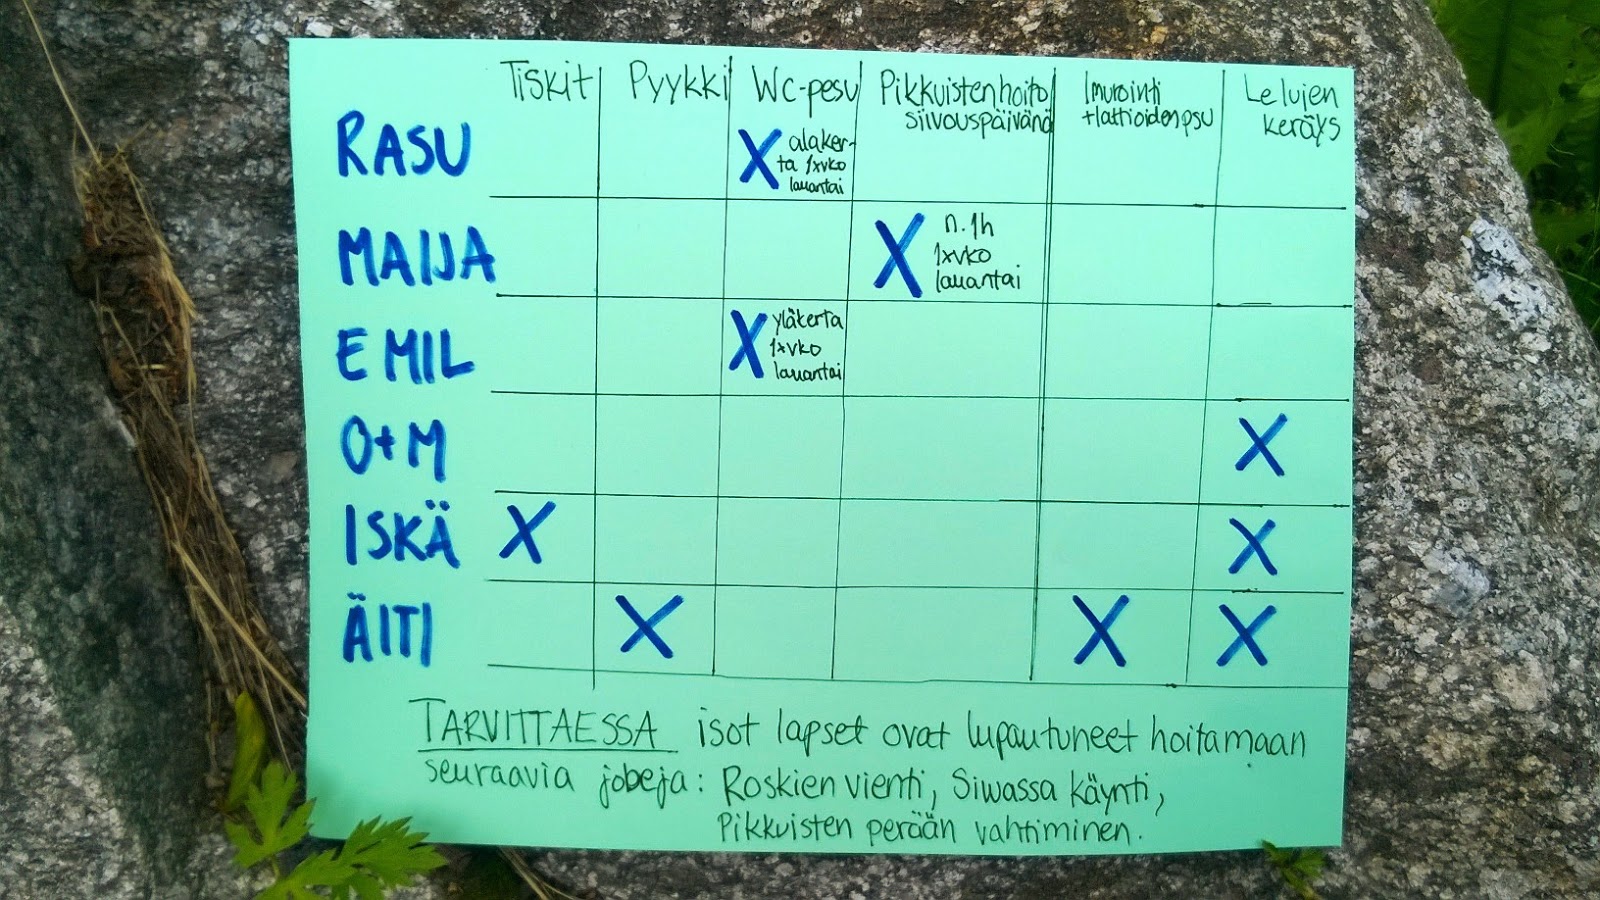 Tiskit Pyykki Wc-pesu Pikkuistenhoito siivouspäivänä Imurointi +lattioidenpsu Lelujen keräys
RASU X alaker-
ta 1xvko
lauantai
MAIJA X n. 1h
1xvko
lauantai
EMIL X yläkerta
1xvko
lauantai
O+M X
ISKÄ X X
ÄITI X X X
TARVITTAESSA isot lapset ovat lupautuneet hoitamaan
seuraavia jobeja: Roskien vienti, Siwassa käynti,
Pikkuisten perään vahtiminen.